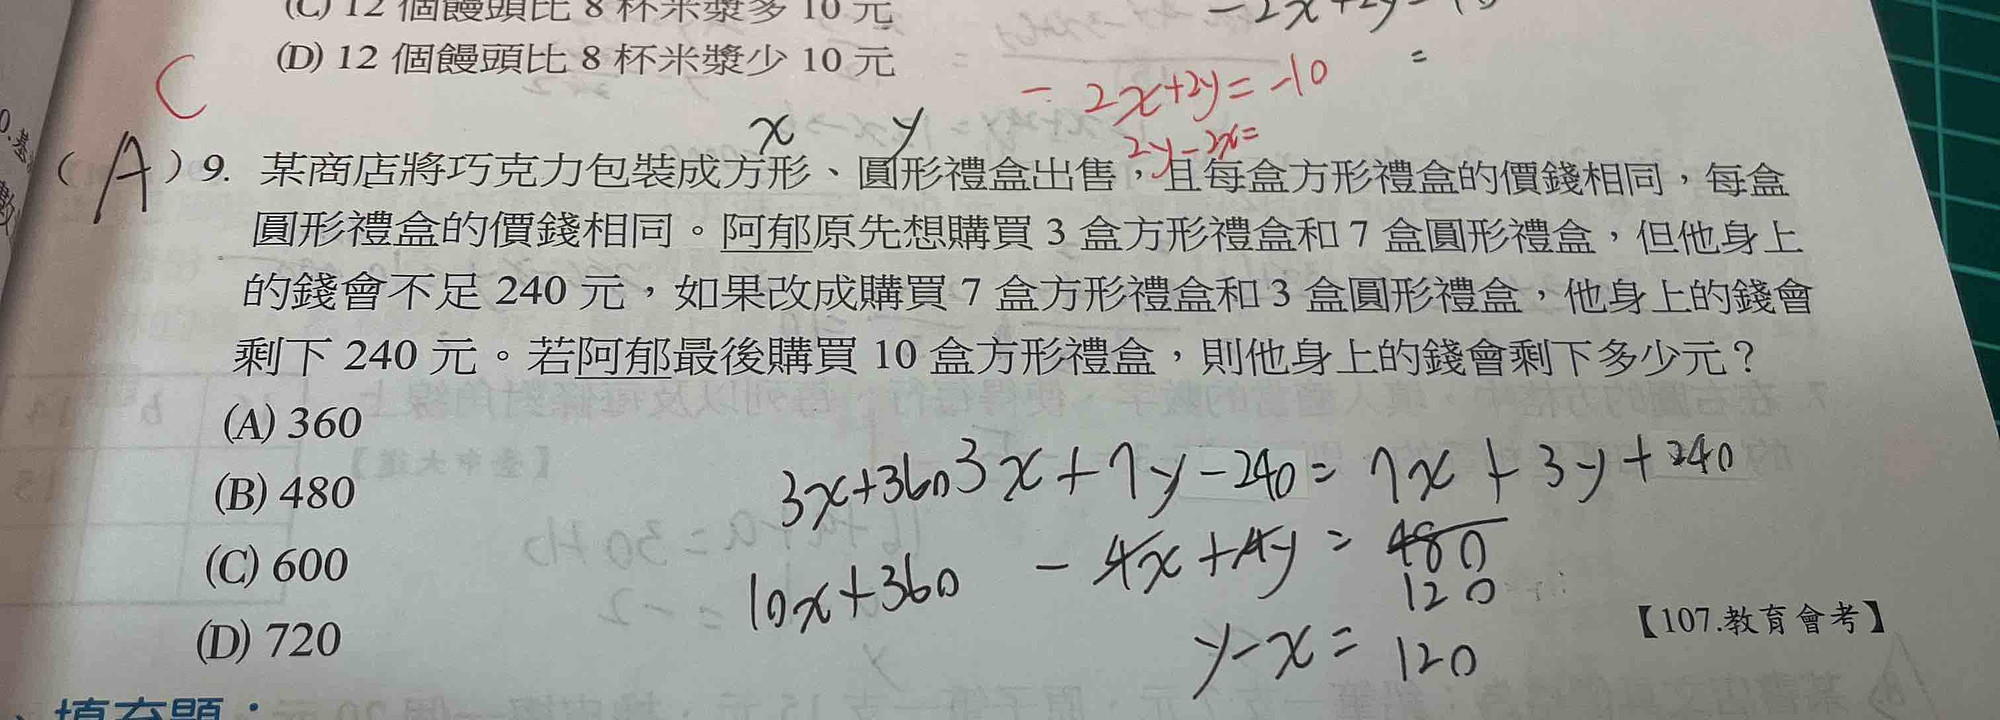 (C) 12 個饅頭比 8 杯米漿多 10 元
(D) 12 個饅頭比 8 杯米漿少 10 元
C
- 2x+2y=-10
2y-2x=
x y
(A) 9. 某商店將巧克力包裝成方形、圓形禮盒出售，且每盒方形禮盒的價錢相同，每盒
圓形禮盒的價錢相同。阿郁原先想購買 3 盒方形禮盒和 7 盒圓形禮盒，但他身上
的錢會不足 240 元，如果改成購買 7 盒方形禮盒和 3 盒圓形禮盒，他身上的錢會
剩下 240 元。若阿郁最後購買 10 盒方形禮盒，則他身上的錢會剩下多少元？
(A) 360
(B) 480
(C) 600
(D) 720
3x+7y-240=7x+3y+240
3x+360
-4x+4y=480
120
10x+360
y-x=120
【107.教育會考】
填充題：